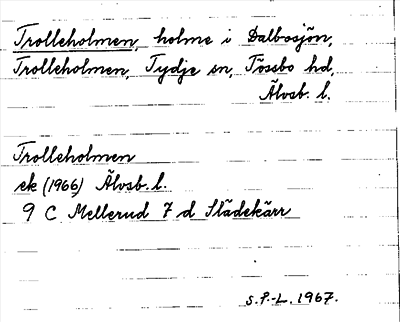 Trolleholmen, holme i Dalbosjön,
Trolleholmen, Tydje sn, Tössbo hd,
Älvsb. l.
Trolleholmen
ek (1966) Älvsb. l.
9 C Mellerud 7 d Slädekärr
S.P.-L. 1967.